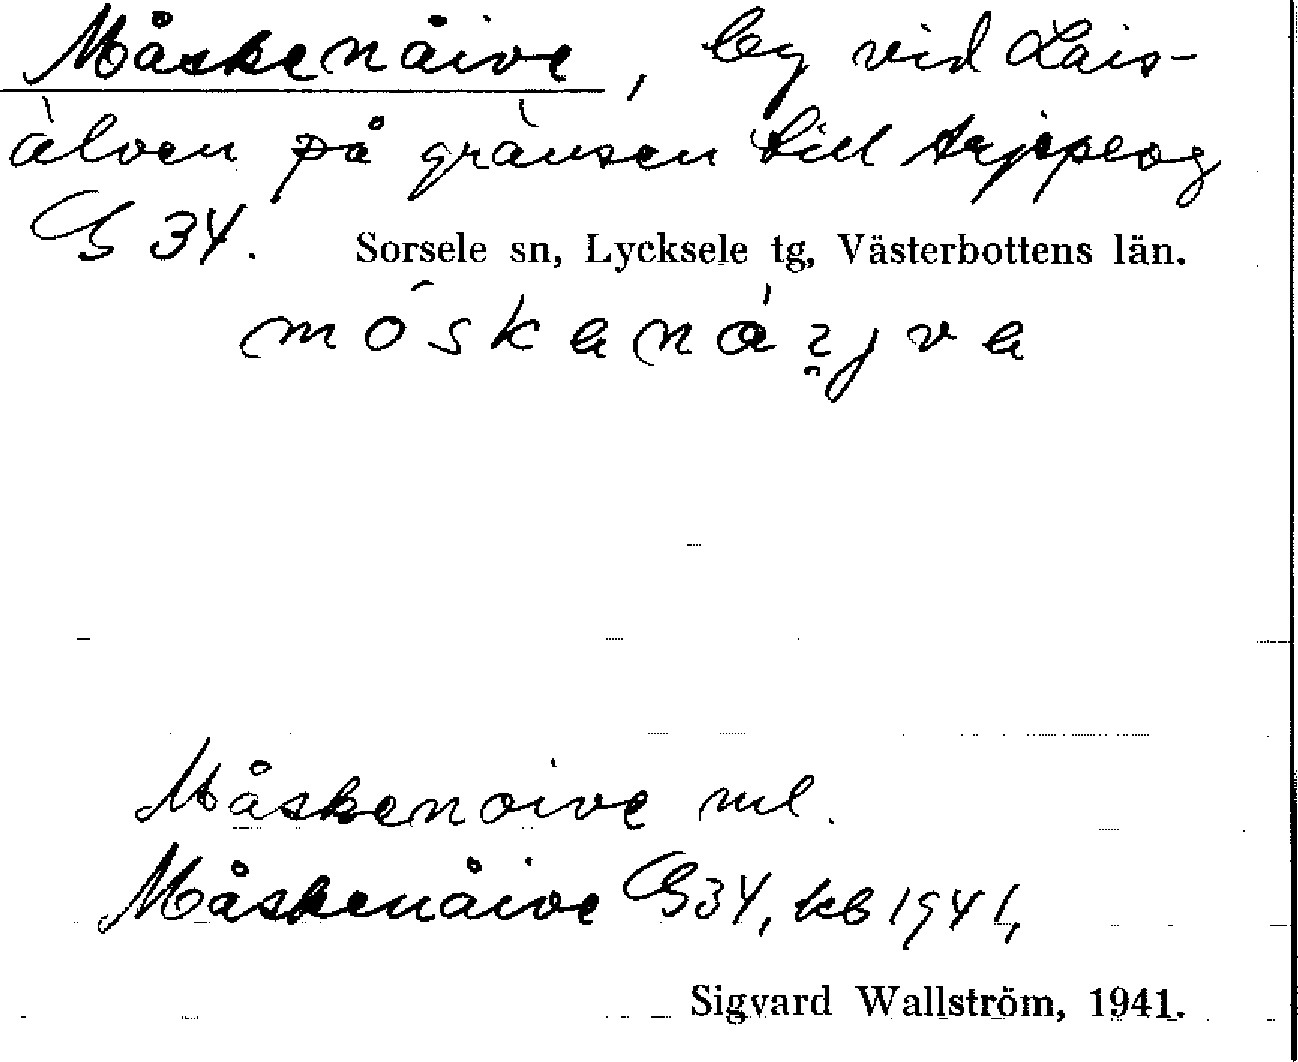 Måskenåive, by vid Lais-
älven på gränsen till Arjeplog
G 34. Sorsele sn, Lycksele tg, Västerbottens län.
Måskenoive ml.
Måskenåive G34, kb 1941,
Sigvard Wallström, 1941.